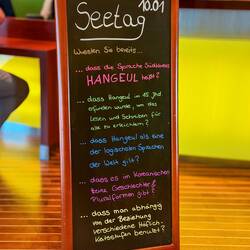 Seetag 10.01
Wussten Sie bereits...
...dass die Sprache Südkoreas
HANGEUL heißt?
...dass Hangeul im 15. Jhd.
erfunden wurde, um das
Lesen und Schreiben für
alle zu erleichtern?
...dass Hangeul als eine
der logischsten Sprachen
der Welt gilt?
...dass es im Koreanischen
keine Geschlechter &
Pluralformen gibt?
...dass man abhängig
von der Beziehung
verschiedene Höflich-
keitsstufen benutzt?